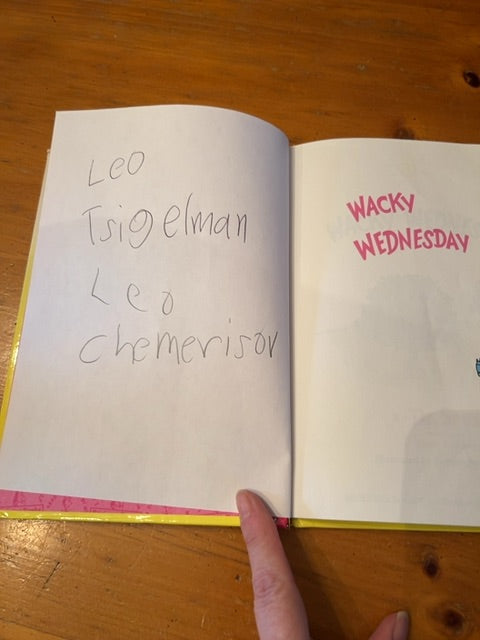 Leo
Tsigelman
Leo
Chemerisov
WACKY
WEDNESDAY